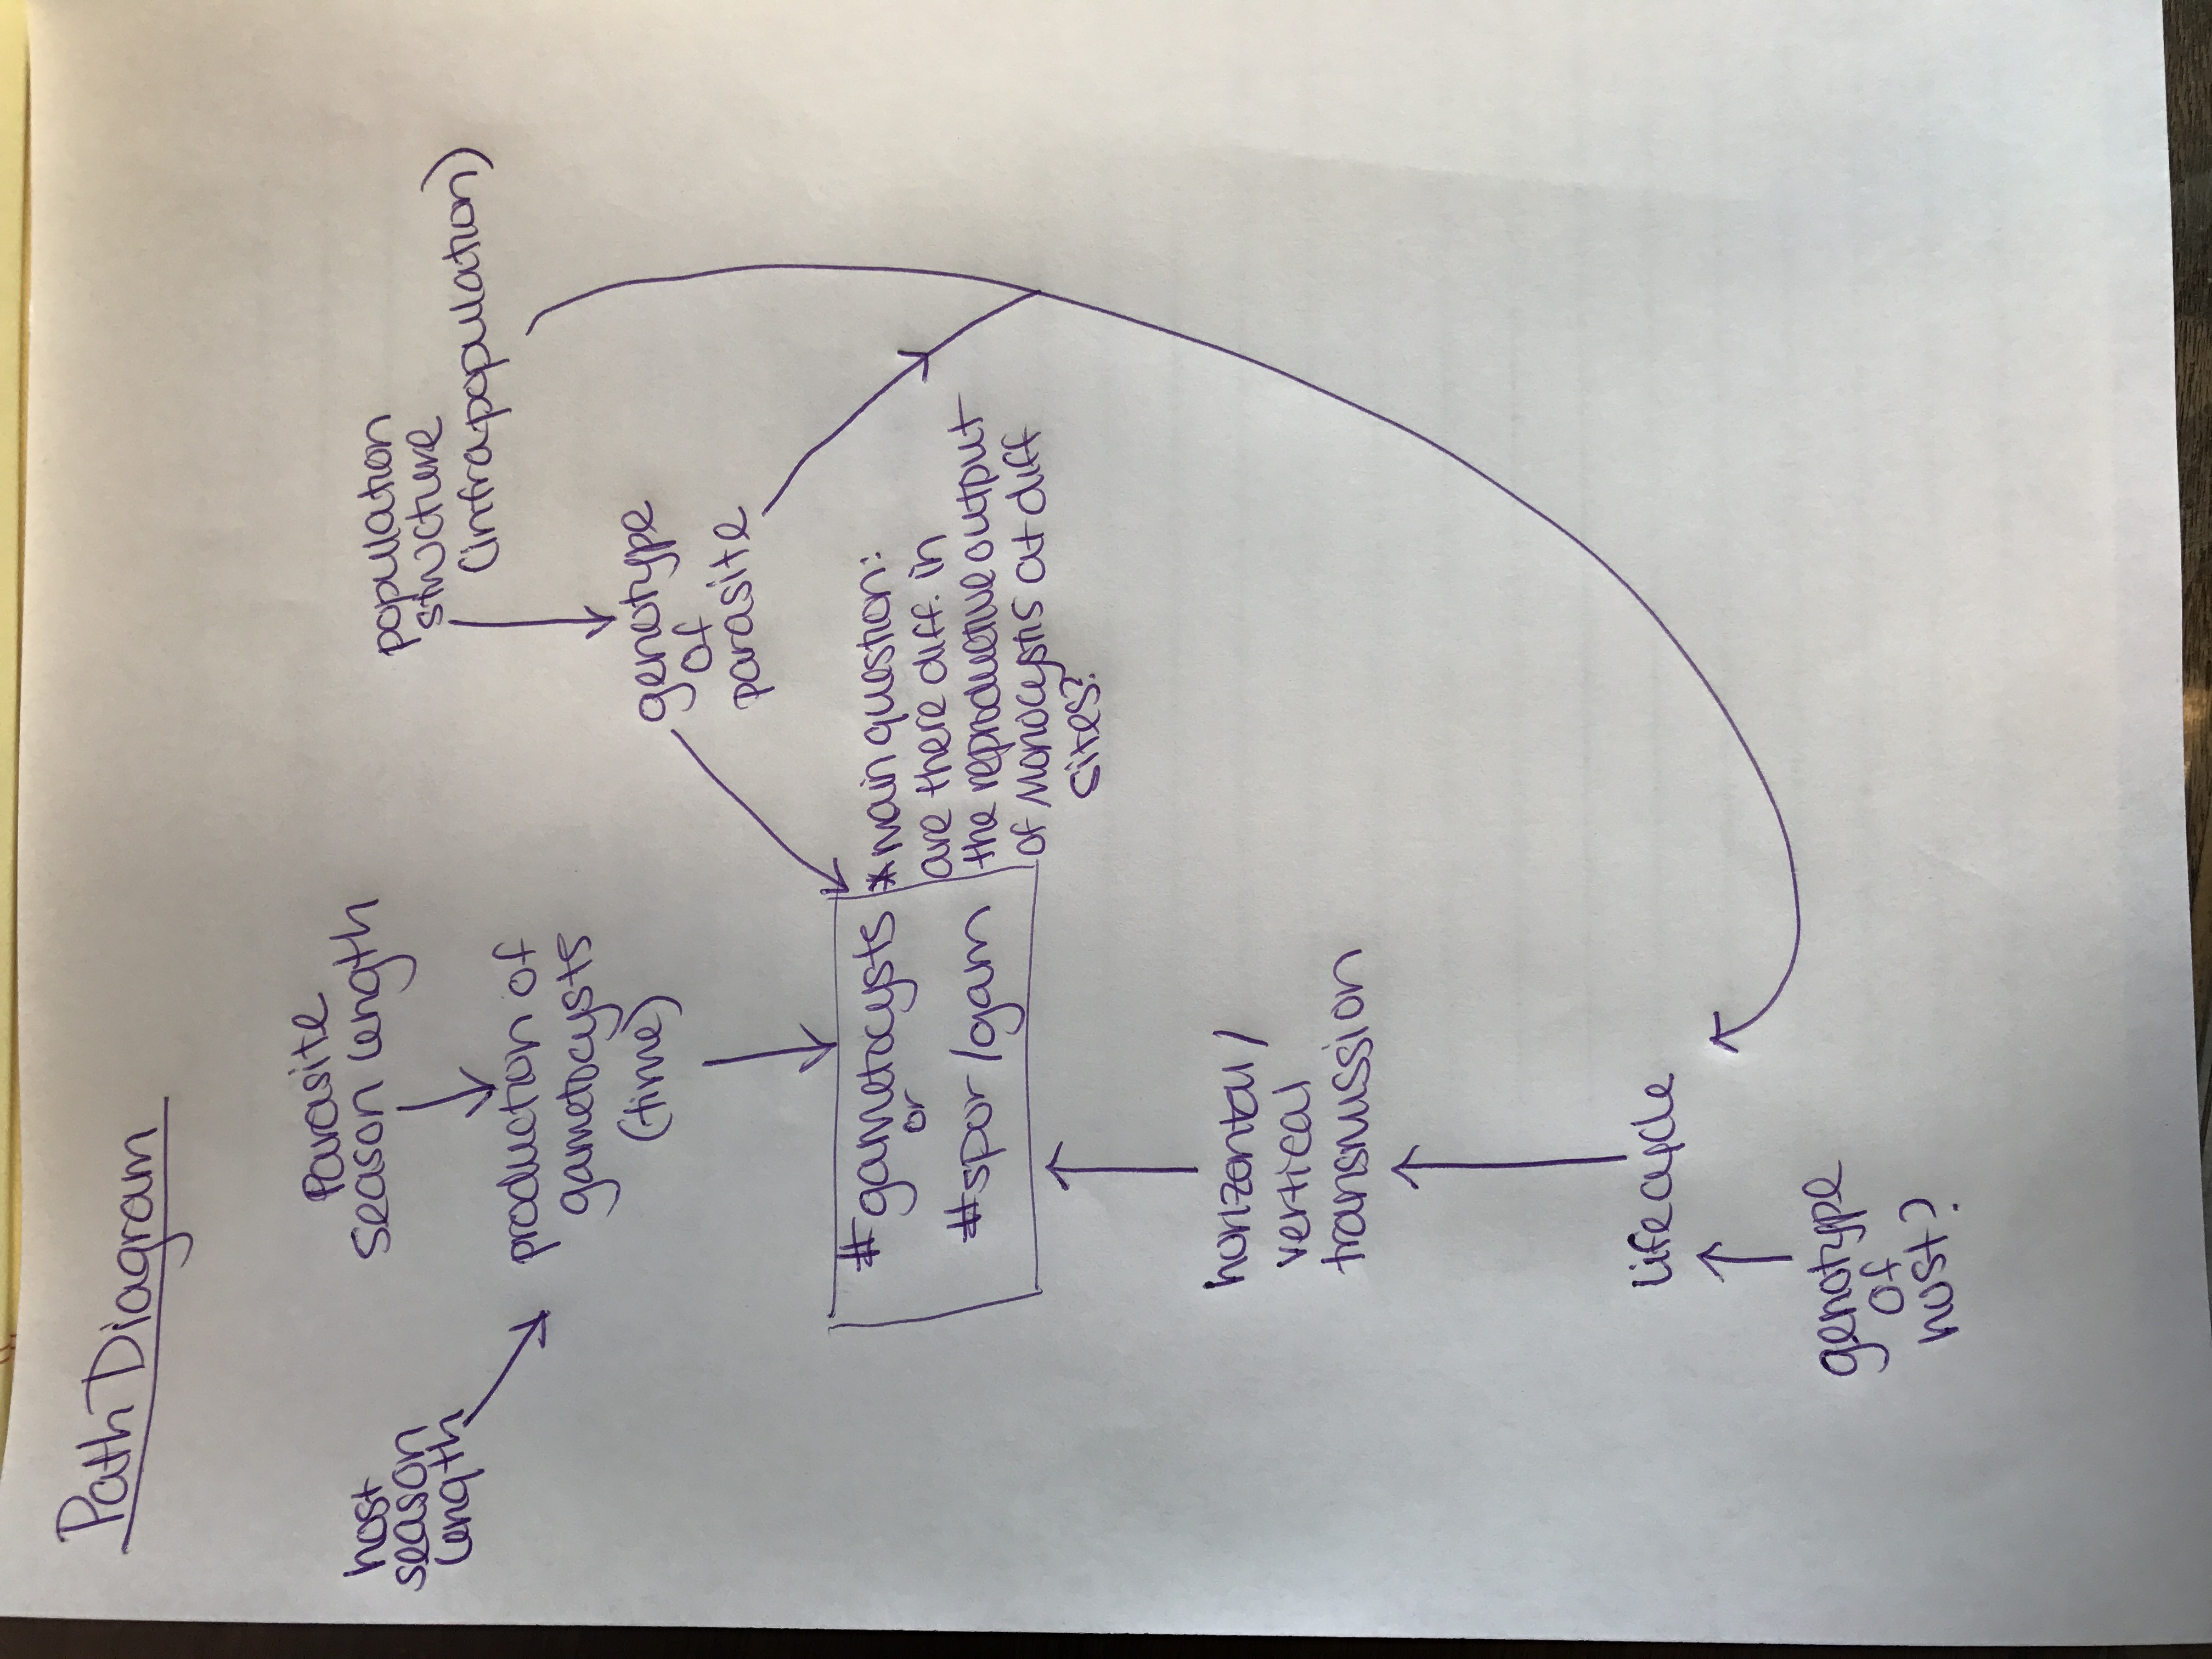 Path Diagram
Parasite
season length
host
season
length
population
structure
(infrapopulation)
production of
gametocysts
(time)
genotype
of
parasite
#gametocysts
or
#spor/gam
*main question:
are there diff. in
the reproductive output
of Monocystis at diff
sites?
horizontal/
vertical
transmission
lifecycle
genotype
of
host?